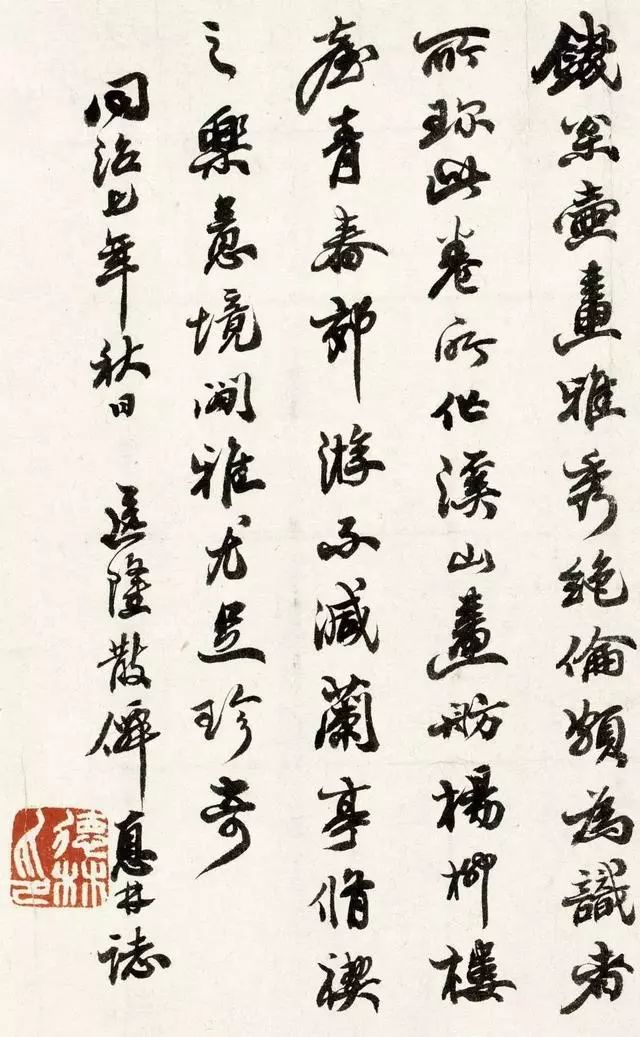 錢枀壺畫雅秀絕倫頗為識者
所珎此卷所作溪山畫舫楊柳樓
臺青春郊游不減蘭亭脩禊
之樂意境閒雅尤足珍奇
同治七年秋日 隆散僊惪林誌
德林